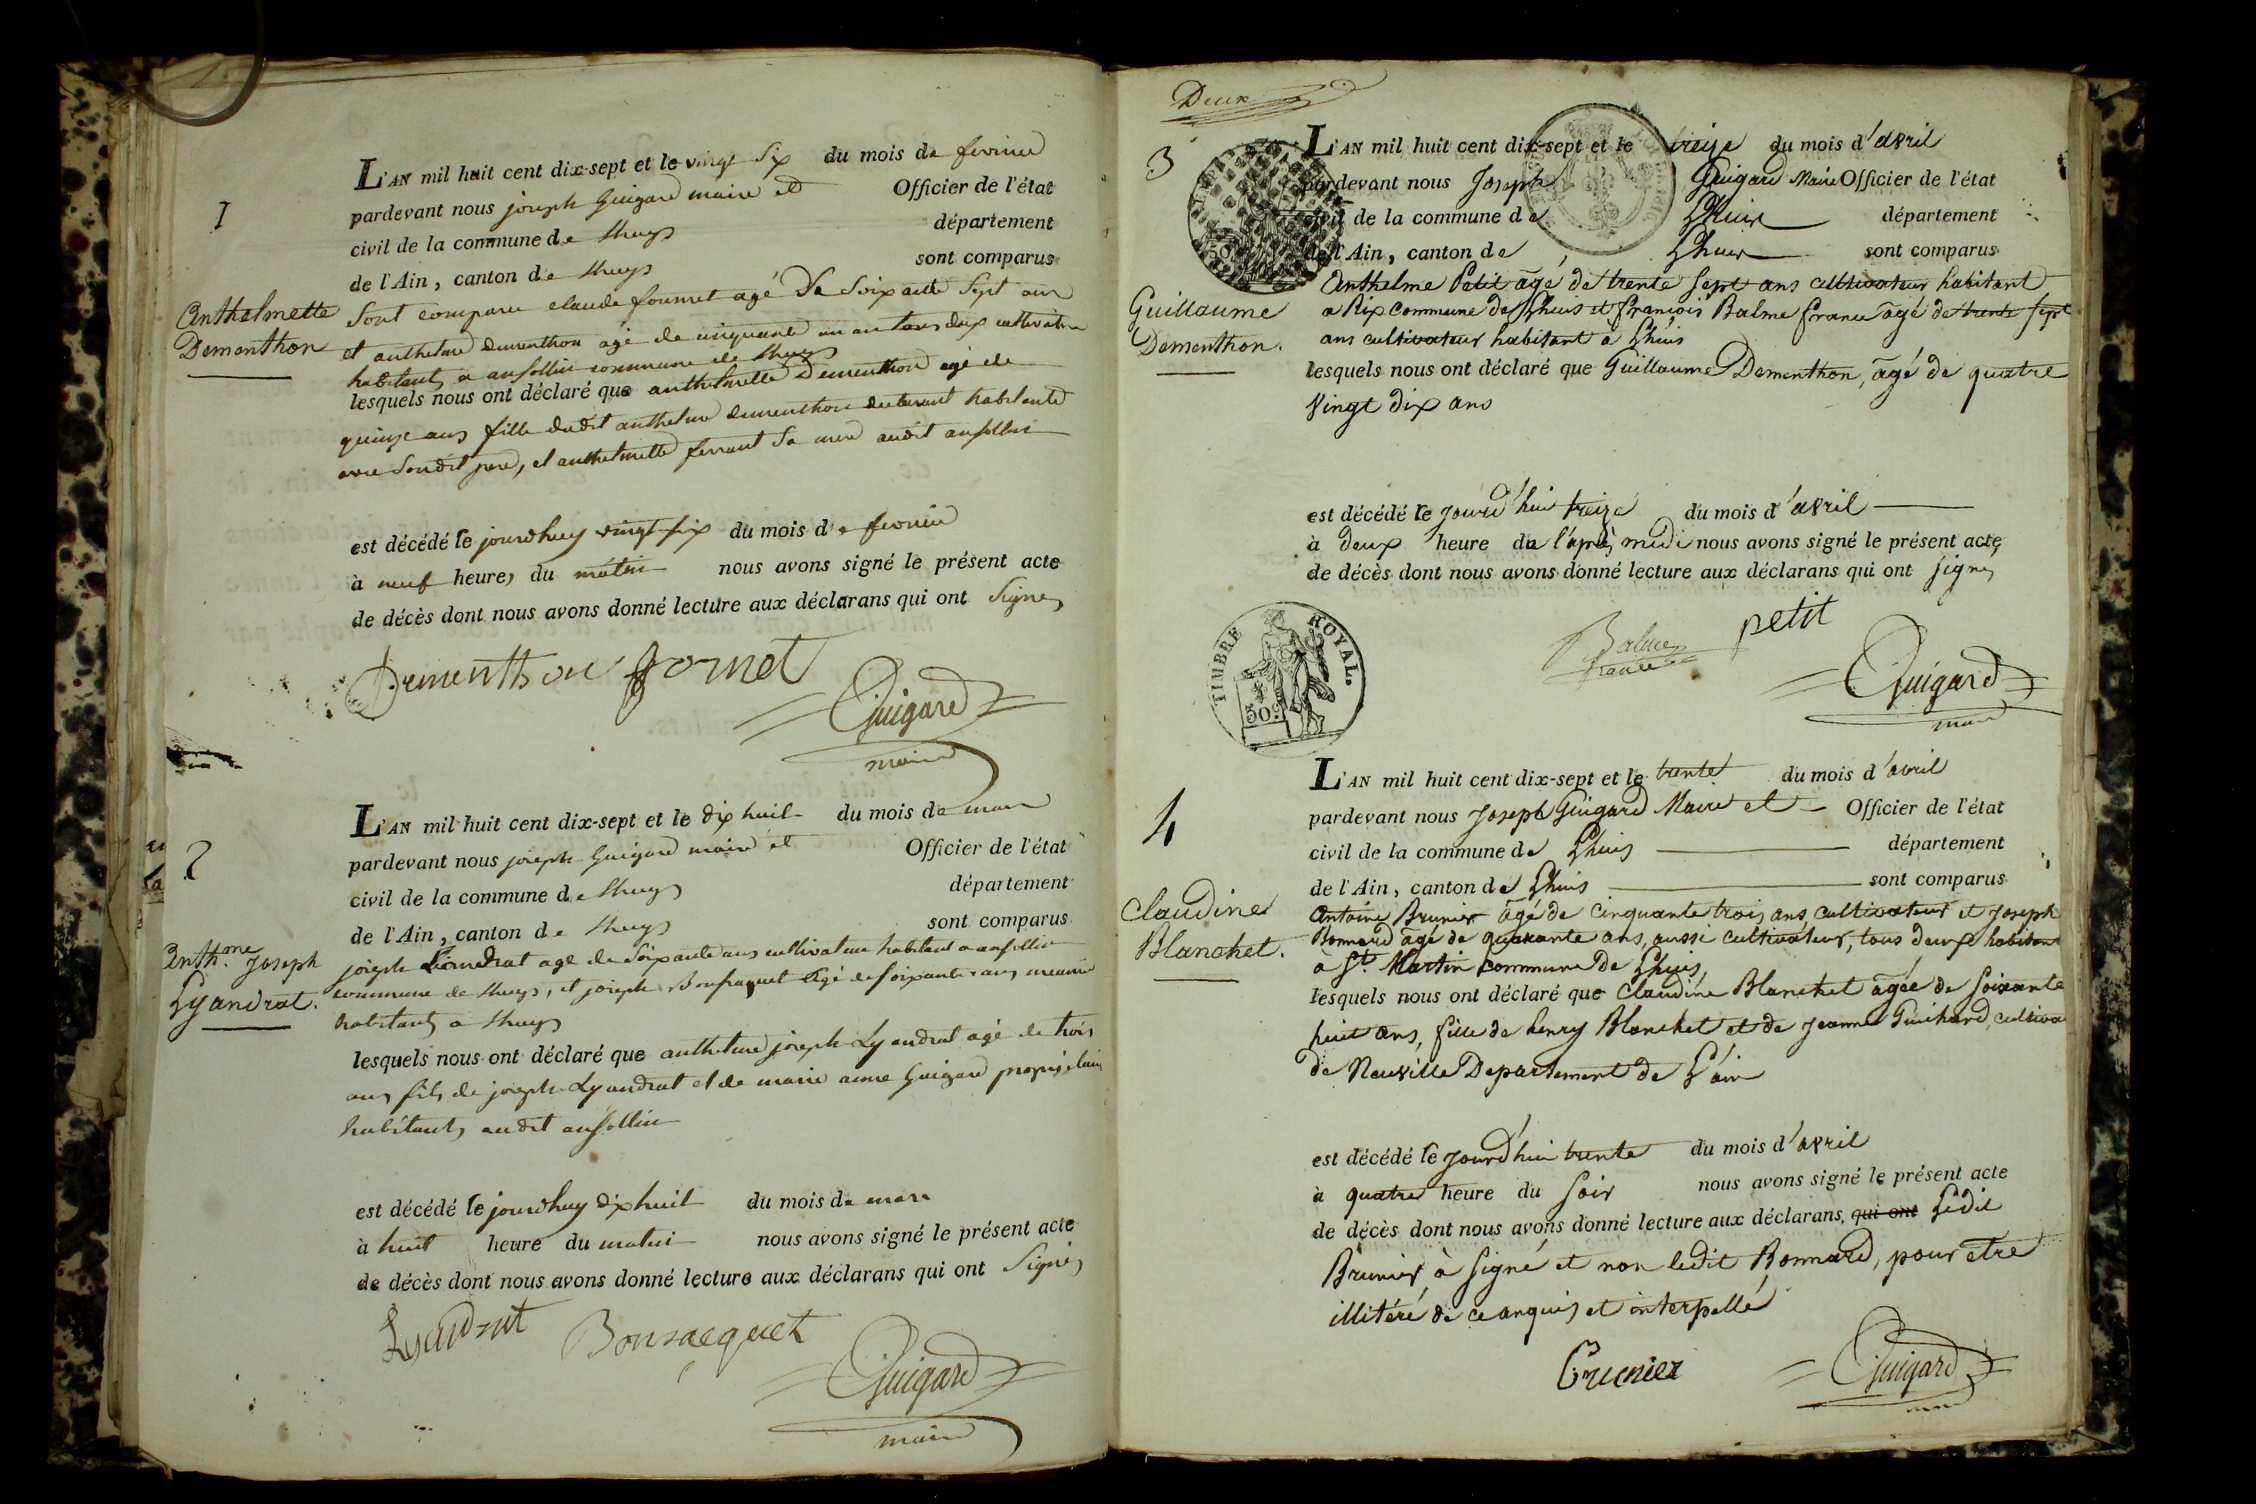 1
L'AN mil huit cent dix-sept et le vingt six du mois de fevrier
pardevant nous joseph Guigard maire et Officier de l'état
civil de la commune de Lhuys département
de l'Ain, canton de Lhuys sont comparus
Anthelmette
Dementhon
Sont comparu claude fournet agé De Soixante Sept ans
et anthelme dementhon agé de cinquante un an tous deux cultivateurs
habitants a ansollin commune de Lhuys
lesquels nous ont déclaré que anthelmette Dementhon agé de
quinze ans fille dudit anthelme dementhon habitante
avec Sondit pere, et anthelmette ferrant Sa mere audit ansollin
est décédé le jourdhuy vingt six du mois de fevrier
à neuf heures du matin nous avons signé le présent acte
de décès dont nous avons donné lecture aux déclarans qui ont Signes
Dementhon fornet
Guigard
maire
2
L'AN mil huit cent dix-sept et le dix huit du mois de mars
pardevant nous joseph Guigard maire et Officier de l'état
civil de la commune de Lhuys département
de l'Ain, canton de Lhuys sont comparus
Anth.me Joseph
Lyandrat.
joseph Liandrat agé de Soixante ans cultivateur habitant a ansollin
commune de Lhuys, et joseph Bonfraquet Agé de soixante ans
habitants a Lhuys
lesquels nous ont déclaré que anthelme joseph Lyandrat agé de trois
ans fils de joseph Lyandrat et de marie anne Guigard propriétaire
habitants audit ansollin
est décédé le jourdhuy dix huit du mois de mars
à huit heure du matin nous avons signé le présent acte
de décès dont nous avons donné lecture aux déclarans qui ont Signés
Lyandrat
Guigard
maire
Deux
3
L'AN mil huit cent dix-sept et le treize du mois d'avril
pardevant nous Joseph Guigard Maire Officier de l'état
civil de la commune de Lhuis département
de l'Ain, canton de Lhuis sont comparus
Guillaume
Dementhon.
Anthelme Petit âgé de trente sept ans cultivateur habitant
a Rix commune de Lhuis et françois Balme france âgé de trente sept
ans cultivateur habitant à Lhuis
lesquels nous ont déclaré que Guillaume Dementhon, âgé de quatre
Vingt dix ans
est décédé le jourd'hui treize du mois d'avril
à deux heure de l'après midi nous avons signé le présent acte
de décès dont nous avons donné lecture aux déclarans qui ont signes
Balme
france
petit
Guigard
maire
TIMBRE ROYAL.
50c
4
L'AN mil huit cent dix-sept et le trente du mois d'avril
pardevant nous Joseph Guigard Maire et Officier de l'état
civil de la commune de Lhuis département
de l'Ain, canton de Lhuis sont comparus
Claudine
Blanchet.
Antoine Brunier âgé de cinquante trois ans cultivateur et Joseph
Bonnard âgé de quarante ans, aussi cultivateur, tous deux habitant
à St. Martin commune de Lhuis,
lesquels nous ont déclaré que Claudine Blanchet âgée de soixante
huit ans, fille de henry Blanchet et de Jeanne Guichard, cultiva
de Neuville Departement de L'ain
est décédé le jourd'hui trente du mois d'avril
à quatre heure du soir nous avons signé le présent acte
de décès dont nous avons donné lecture aux déclarans, qui ont Ledit
Brunier à signé et non ledit Bonnard, pour être
illitéré de ce anquis et interpellé
Brunier
Guigard
maire